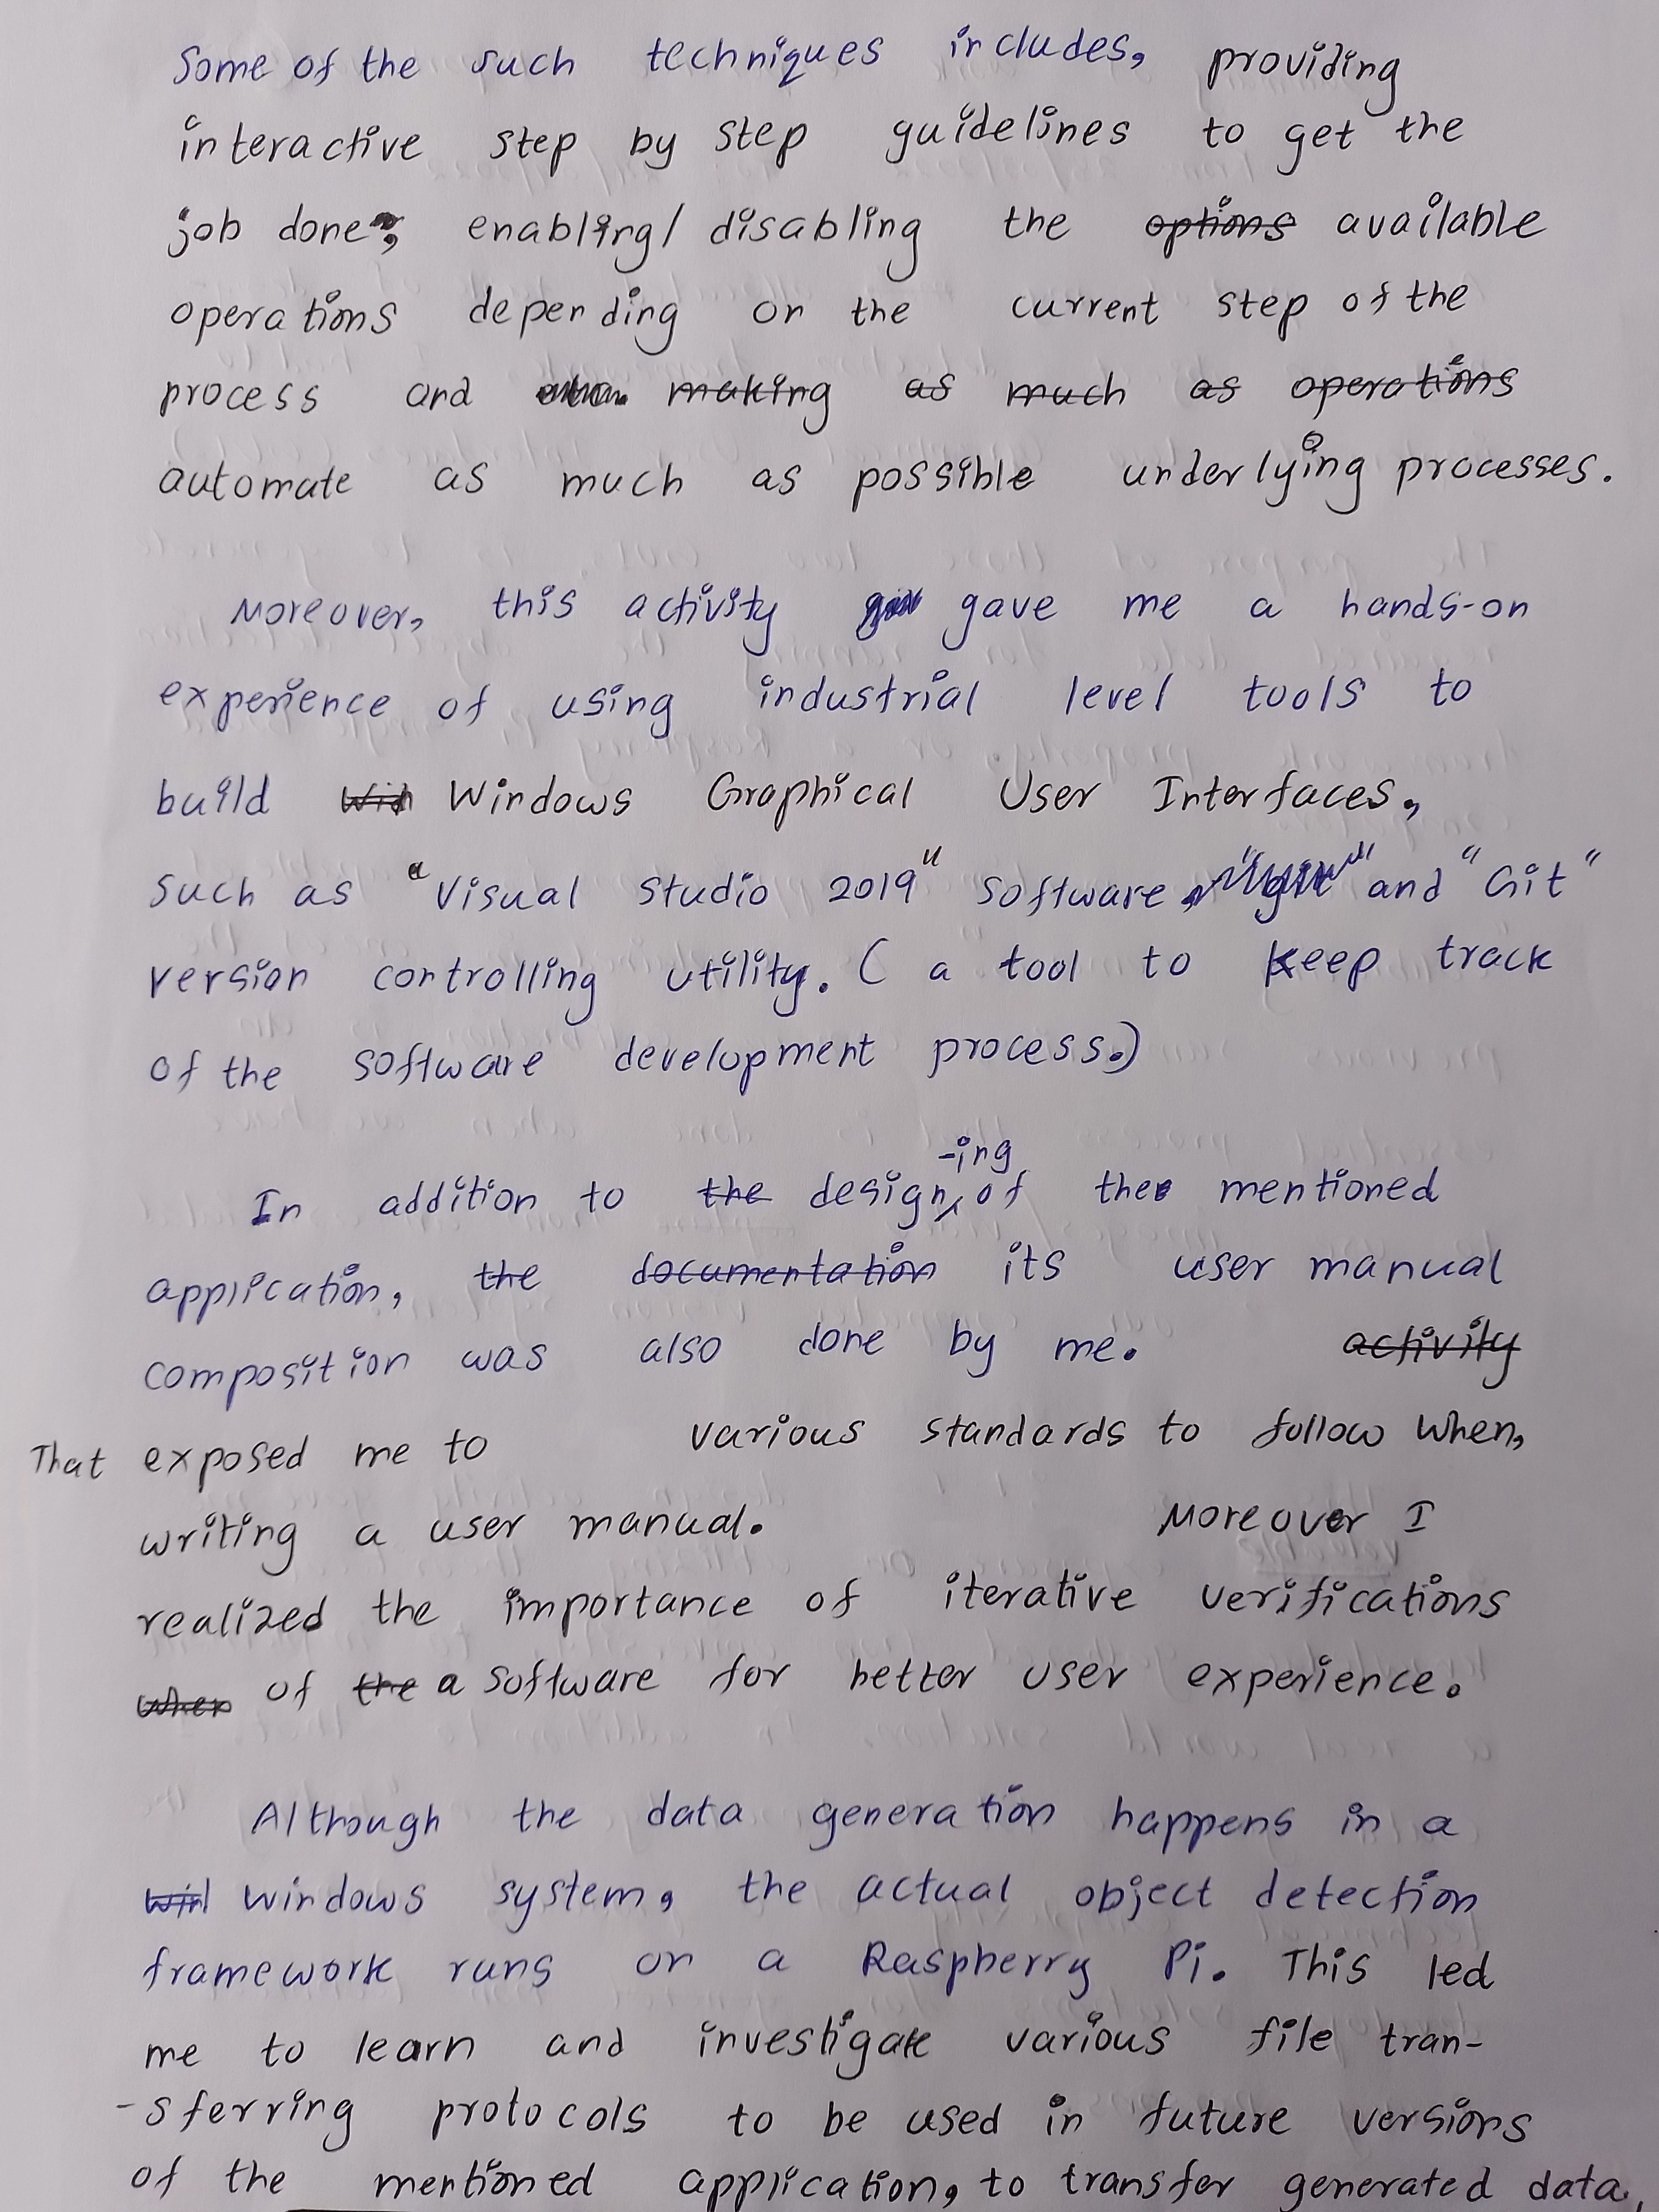 Some of the such techniques includes, providing
interactive step by step guidelines to get the
job done, enabling/ disabling the options available
operations depending on the current step of the
process and making as much as operations
automate as much as possible underlying processes.
Moreover, this activity gave me a hands-on
experience of using industrial level tools to
build Win Windows Graphical User Interfaces,
such as "Visual Studio 2019" software "git" and "Git"
version controlling utility. ( a tool to keep track
of the software development process.)
-ing
In addition to the design, of the mentioned
application, the documentation its user manual
composition was also done by me. activity
That exposed me to various standards to follow when,
writing a user manual. Moreover I
realized the importance of iterative verifications
when of the a software for better user experience.
Although the data generation happens in a
win windows system, the actual object detection
framework runs on a Raspberry Pi. This led
me to learn and investigate various file tran-
-sferring protocols to be used in future versions
of the mentioned application, to transfer generated data,